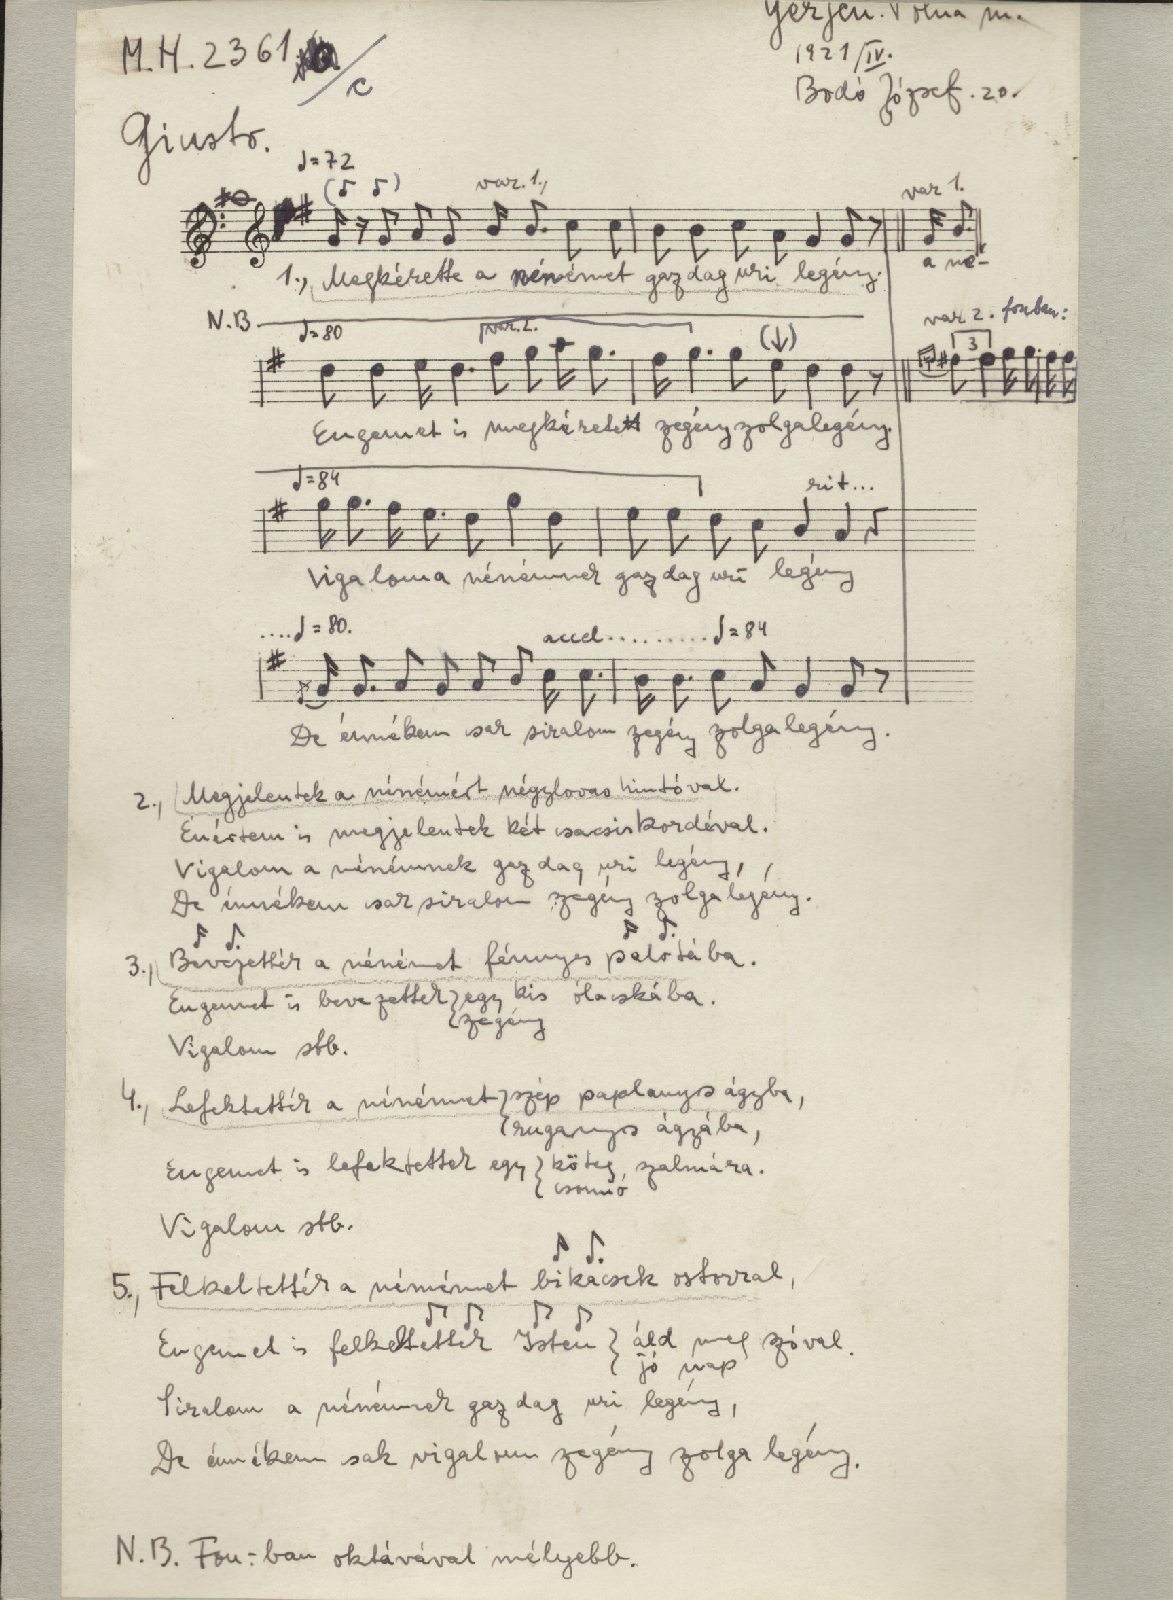 Gerjen. Tolna m.
M.H. 2361 /c
1921/IV.
Bodó József. 20.
Giusto.
♩=72
var. 1.,
var 1.
1., Megkérette a nénémet gazdag uri legény.
a né-
N.B.
♩=80
var. 2.
var 2. fonban:
3
Engemet is megkéretett zegény zolgalegény.
♩=84
rit...
Vigalom a nénémnek gazdag uri legény
....♩=80.
accel.......... ♩=84
De énnékem sak siralom zegény zolgalegény.
2., Megjelentek a nénémért négylovas hintóval.
Enértem is megjelentek két csacsiskordéval.
Vigalom a nénémnek gazdag uri legény,
De énnékem sak siralom zegény zolgalegény.
3., Bevezették a nénémet fényes palotába.
Engemet is bevezettek egy kis ólacskába.
zegény
Vigalom stb.
4., Lefektették a nénémet szép paplanyos ágyba,
ruganyos ágyába,
Engemet is lefektettek egy köteg szalmára.
csomó
Vigalom stb.
5., Felkeltették a nénémet bikacsek ostorral,
Engemet is felkeltettek Isten áld meg zóval.
jó nap
Siralom a nénémnek gazdag uri legény,
De énnékem sak vigalom zegény zolga legény.
N.B. Fon.-ban oktávával mélyebb.